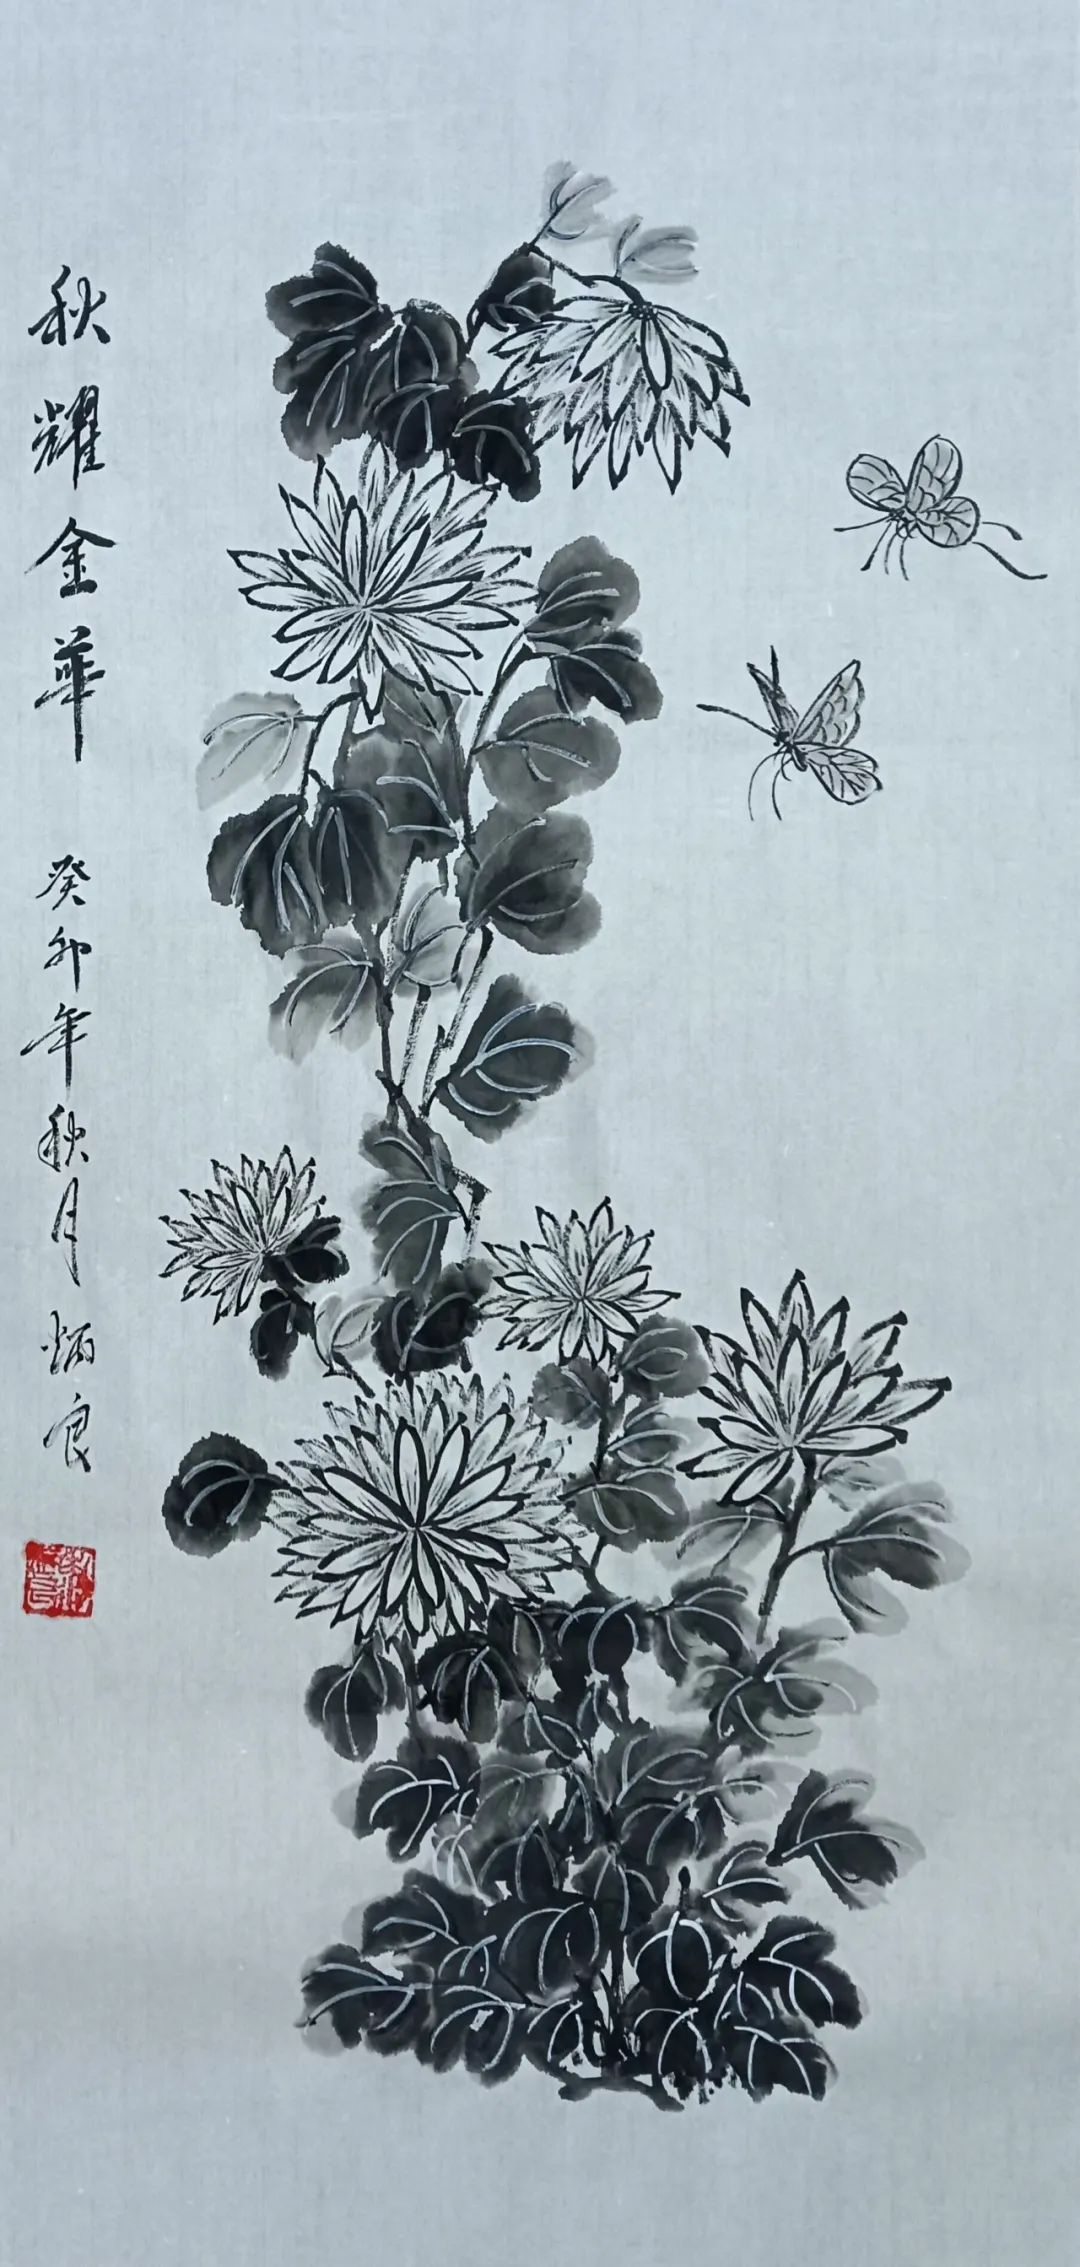 秋耀金華
癸卯年秋月炳良